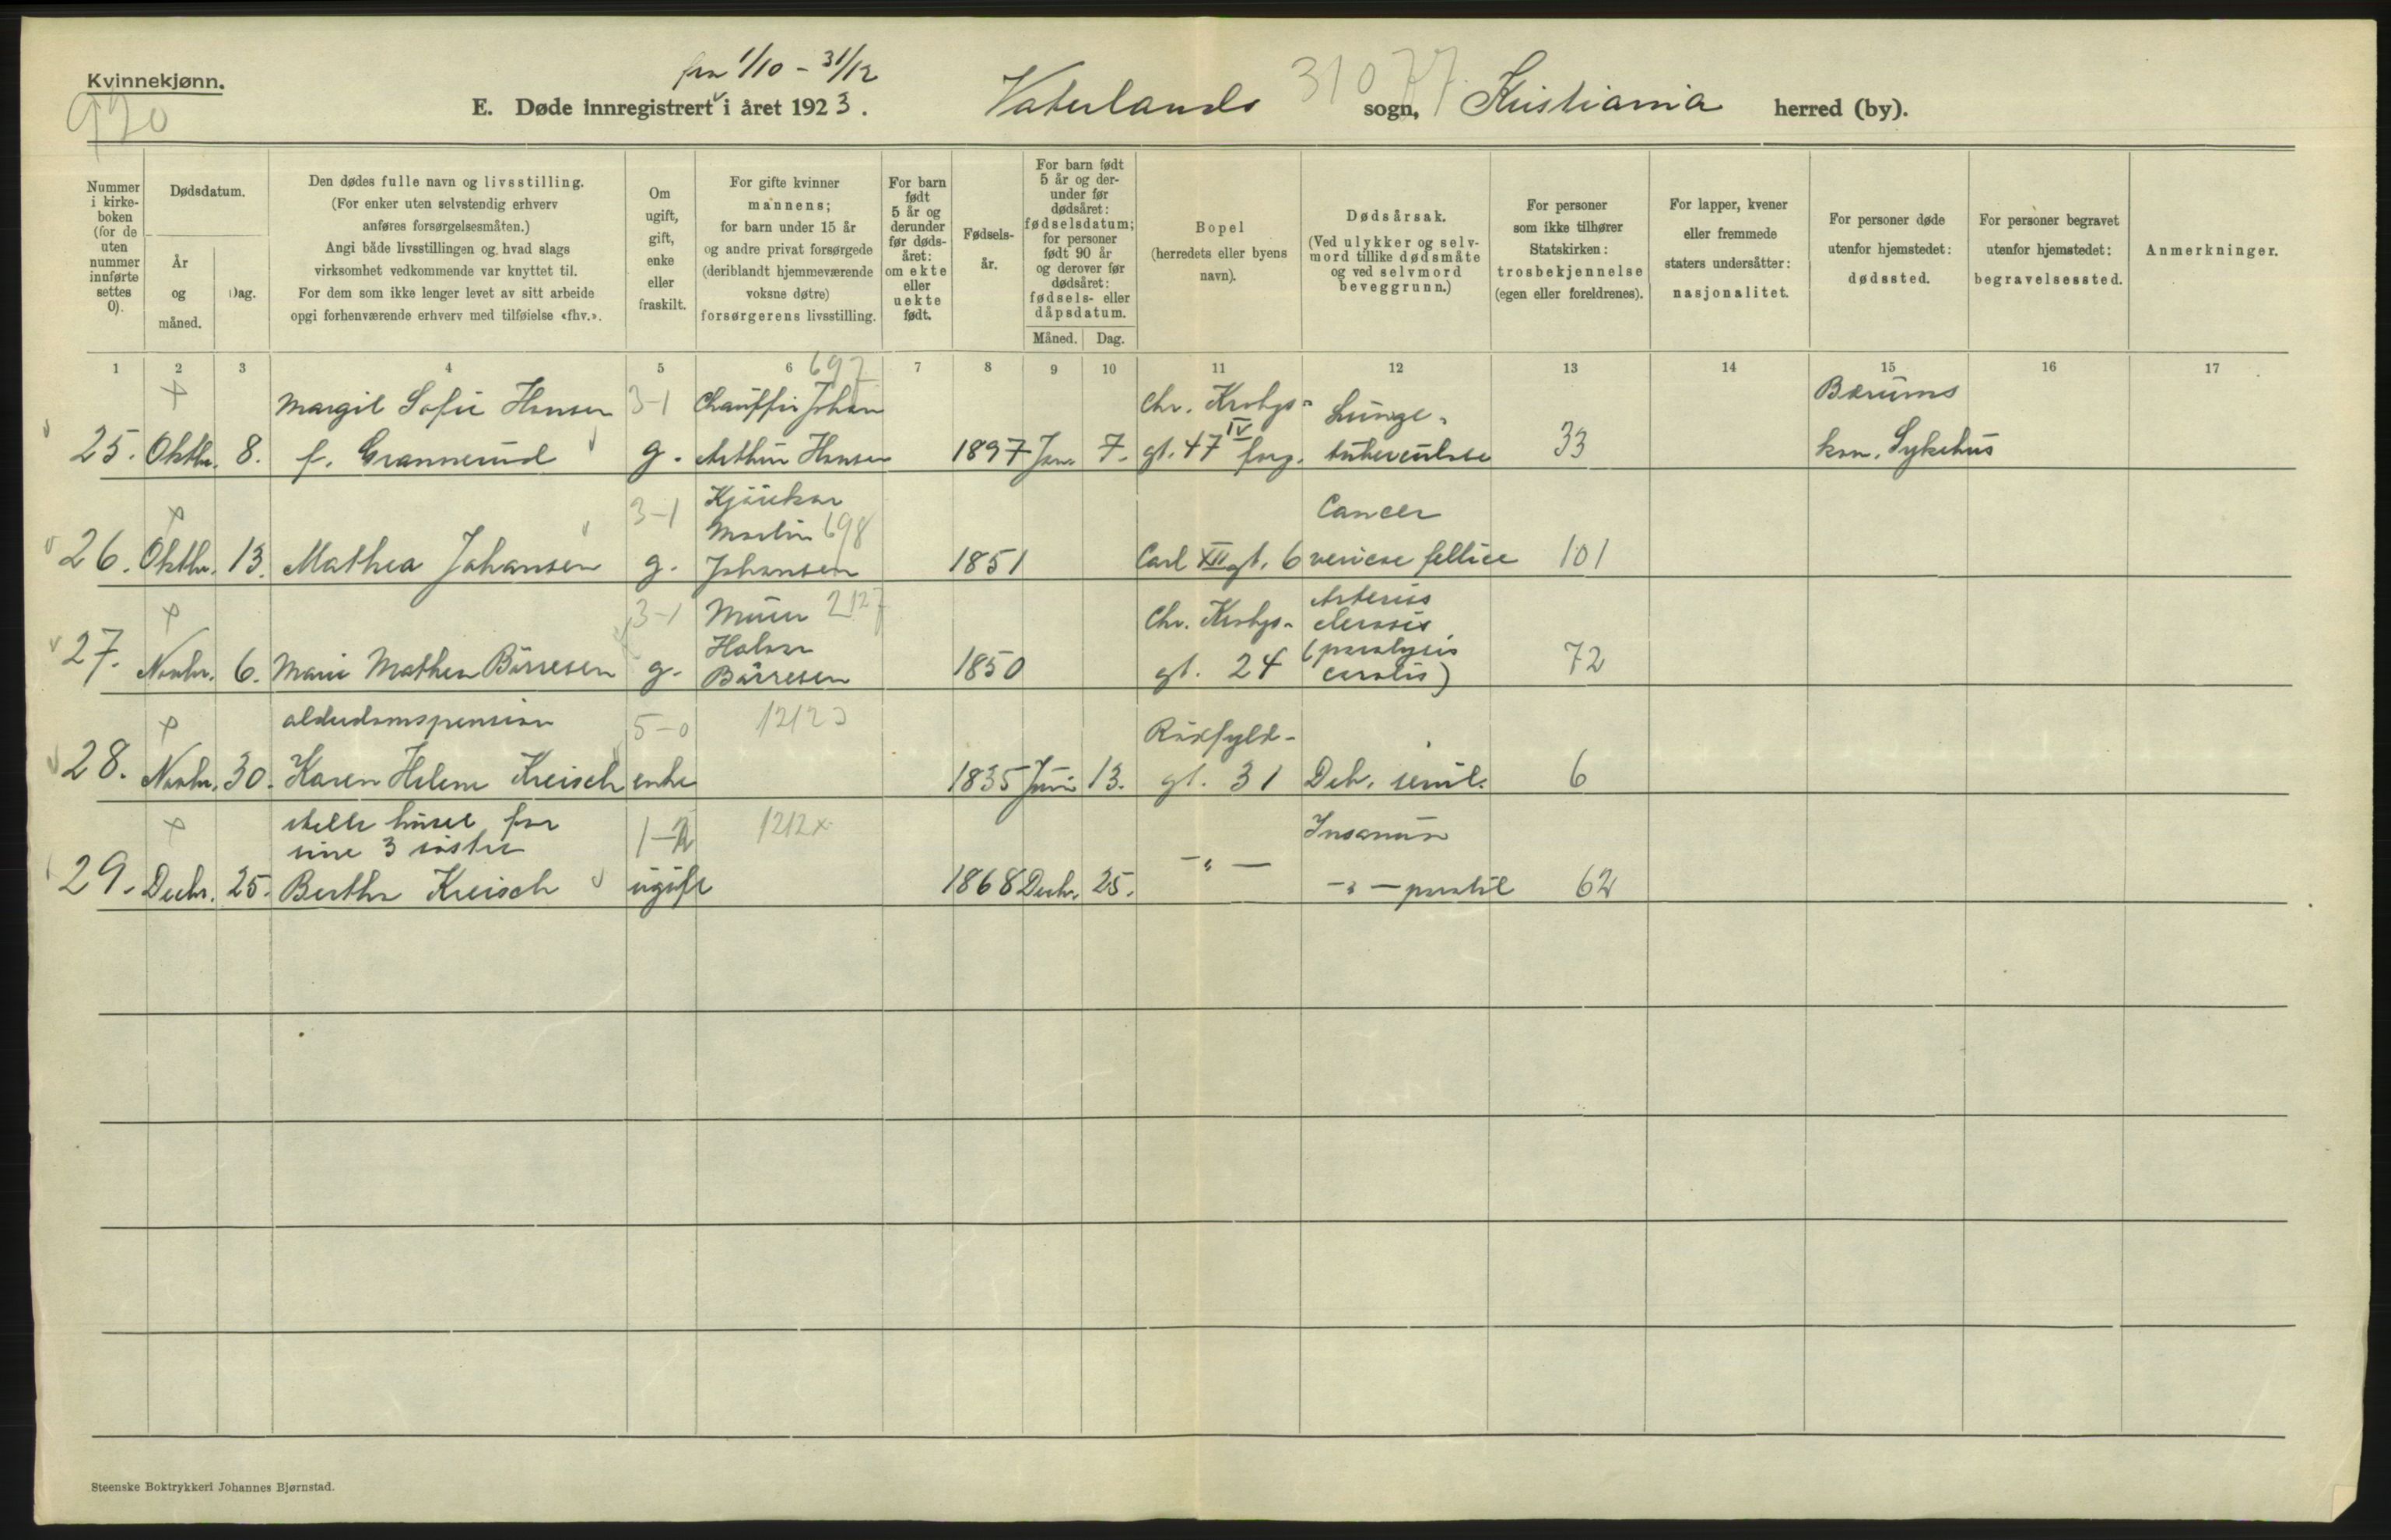 Kvinnekjønn.
920
fra 1/10 - 31/12
E. Døde innregistrert i året 1923. Vaterlands sogn, Kristiania herred (by).
31077
Nummer i kirke- boken (for de uten nummer innførte settes 0).
Dødsdatum.
År og måned.
Dag.
Den dødes fulle navn og livsstilling.
(For enker uten selvstendig erhverv
anføres forsørgelsesmåten.)
Angi både livsstillingen og hvad slags
virksomhet vedkommende var knyttet til.
For dem som ikke lenger levet av sitt arbeide
opgi forhenværende erhverv med tilføielse «fhv.».
Om ugift, gift, enke eller fraskilt.
For gifte kvinner
mannens;
for barn under 15 år
og andre privat forsørgede
(deriblandt hjemmeværende
voksne døtre)
forsørgerens livsstilling.
For barn født 5 år og derunder før døds- året: om ekte eller uekte født.
Fødsels- år.
For barn født 5 år og der- under før dødsåret: fødselsdatum; for personer født 90 år og derover før dødsåret: fødsels- eller dåpsdatum.
Måned. Dag.
Bopel
(herredets eller byens
navn).
Dødsårsak.
(Ved ulykker og selv-
mord tillike dødsmåte
og ved selvmord
beveggrunn.)
For personer
som ikke tilhører
Statskirken:
trosbekjennelse
(egen eller foreldrenes).
For lapper, kvener
eller fremmede
staters undersåtter:
nasjonalitet.
For personer døde
utenfor hjemstedet:
dødssted.
For personer begravet
utenfor hjemstedet:
begravelsessted.
Anmerkninger.
1 2 3 4 5 6 7 8 9 10 11 12 13 14 15 16 17
697
Margit Sofie Hansen 3-1 Chauffør Johan Chr. Krohgs- Lunge- Bærums
25. Oktbr. 8. f. Grannerud g. Arthur Hansen 1897 Jan. 7. gt. 47 IV forg. tuberculose 33 kom. Sykehus
3-1 Kjørekar
Martin 698 Cancer
26. Oktbr. 13. Mathea Johansen g. Johansen 1851 Carl XII gt. 6 vericae fellice 101
3-1 Murer 2127 Chr. Krohgs- Arterios
Halvor clerosis
27. Novbr. 6. Marie Mathea Börresen g. Börresen 1850 gt. 24 (paralysis 72
alderdomspension 5-0 1212 Rödfyld-
28. Novbr. 30. Karen Helene Kreisch enke 1835 Juni 13. gt. 31 Deb. senil. 6
stelte huset for 1-2 1212x
sine 3 søstre
29. Decbr. 25. Bertha Kreisch ugift 1868 Decbr. 25. -"- 62
Steenske Boktrykkeri Johannes Bjørnstad.